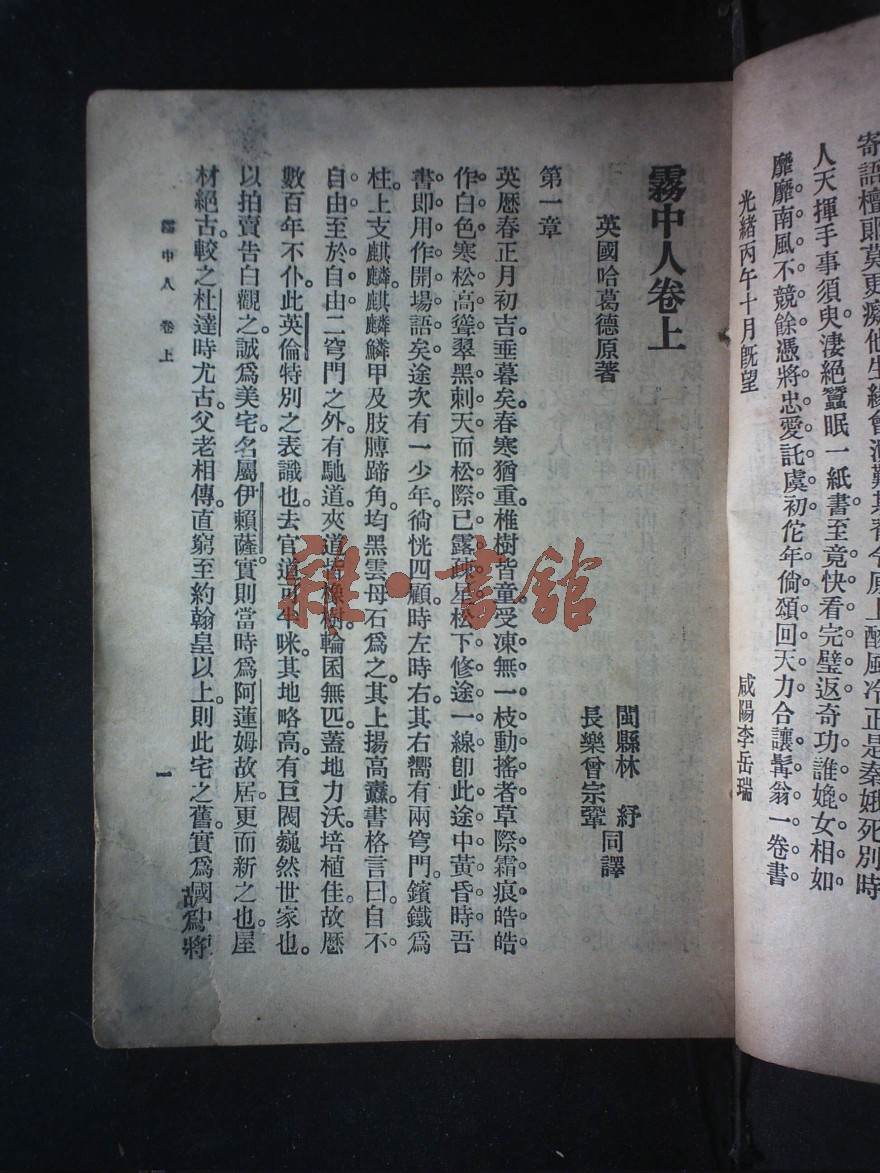 寄語檀郎莫更癡他生緣會
難其
今原上酸風冷正是秦娥死別時
人天揮手事須臾淒絕蠶眠一紙書至竟快看完璧返奇功誰媲女相如
靡靡南風不競餘憑將忠愛託虞初佗年倘頌回天力合讓髯翁一卷書
光緒丙午十月旣望 咸陽李岳瑞
霧中人卷上
英國哈葛德原著
閩縣林紓
長樂曾宗鞏
同譯
第一章
英歷春正月初吉。垂暮矣。春寒猶重。椎樹皆童。受凍無一枝動搖者。草際霜痕皓皓
作白色。寒松高聳。翠黑刺天。而松際已露疎星。松下修途一線。卽此途中黃昏時。吾
書卽用作開場語矣。途次有一少年。徜恍四顧。時左時右。其右嚮有兩穹門。鑌鐵爲
柱。上支麒麟。麒麟鱗甲及肢膊蹄角。均黑雲母石爲之。其上揚高纛。書格言曰。自不
自由至於自由。二穹門之外。有馳道。夾道皆橡樹。輪囷無匹。蓋地力沃。培植佳。故歷
數百年不仆。此英倫特別之表識也。去官道可半咪。其地略高。有巨閥巍然世家也。
以拍賣告白觀之。誠爲美宅。名屬伊賴薩。實則當時爲阿蓮姆故居。更而新之也。屋
材絕古。較之杜達時尤古。父老相傳。直窮至約翰皇以上。則此宅之舊。實爲國中
故爲將
霧中人 卷上
一
雜·書館